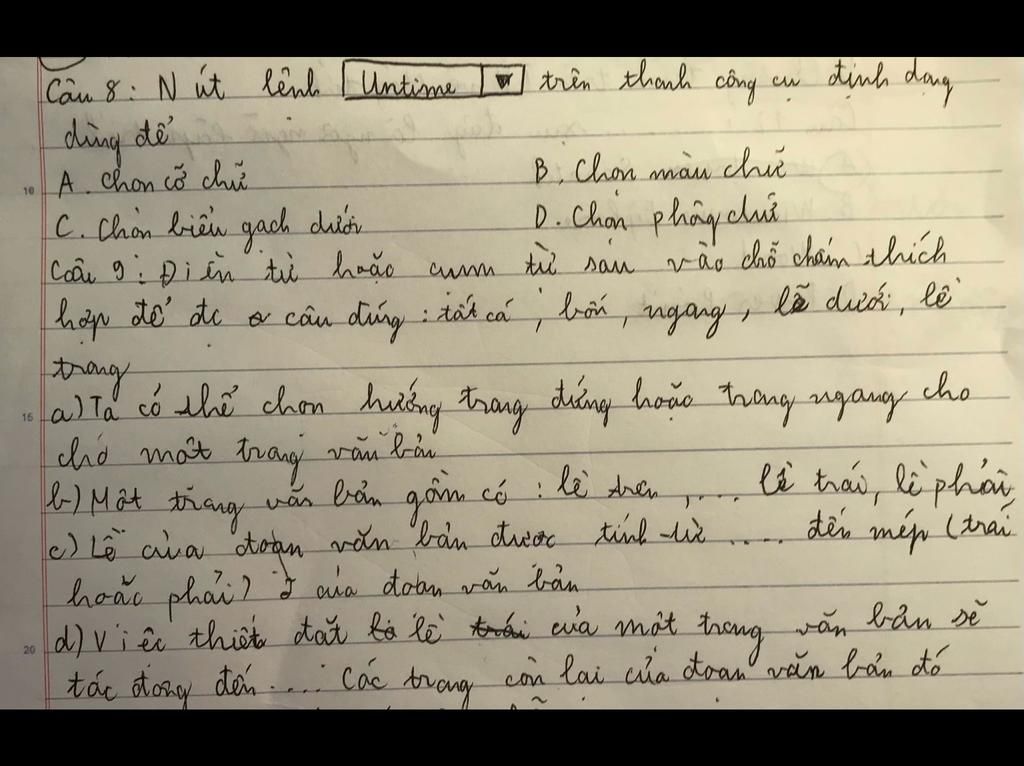 Câu 8: Nút lệnh Untime ▼ trên thanh công cụ định dạng
dùng để
A. Chọn cỡ chữ
B. Chọn màu chữ
C. Chọn biểu gạch dưới
D. Chọn phông chữ
Câu 9: Điền từ hoặc cụm từ sau vào chỗ chấm thích
hợp để đc câu đúng: tất cả, bốn, ngang, lề dưới, lề
trang
a) Ta có thể chọn hướng trang đứng hoặc trang ngang cho
cho một trang văn bản
b) Một trang văn bản gồm có: lề trên, .... lề trái, lề phải
c) Lề của đoạn văn bản được tính từ ..... đến mép (trái
hoặc phải) của đoạn văn bản
d) Việc thiết đặt lề trái của một trang văn bản sẽ
tác động đến .... Các trang còn lại của đoạn văn bản đó
10
15
20